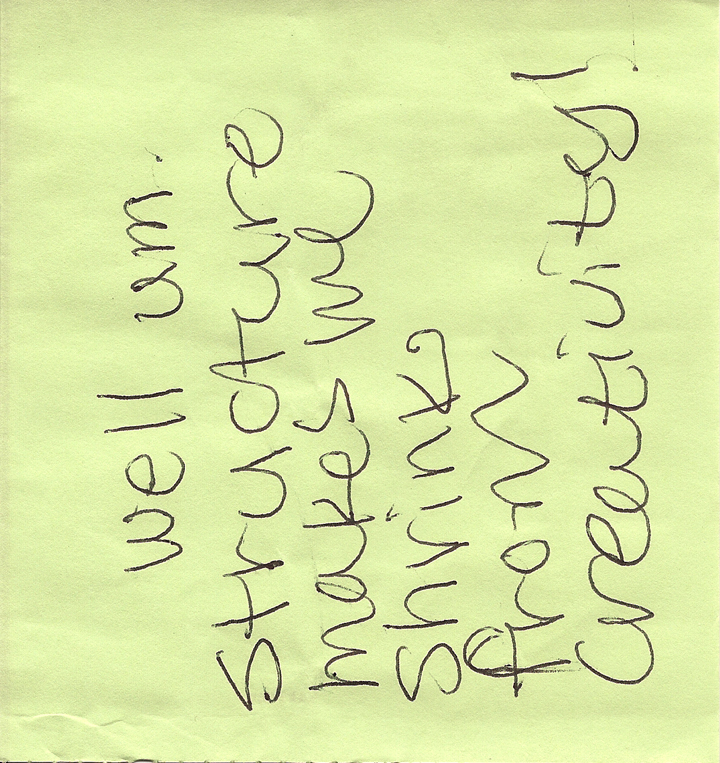 well um.
structure
makes me
shrink
from
creativity!